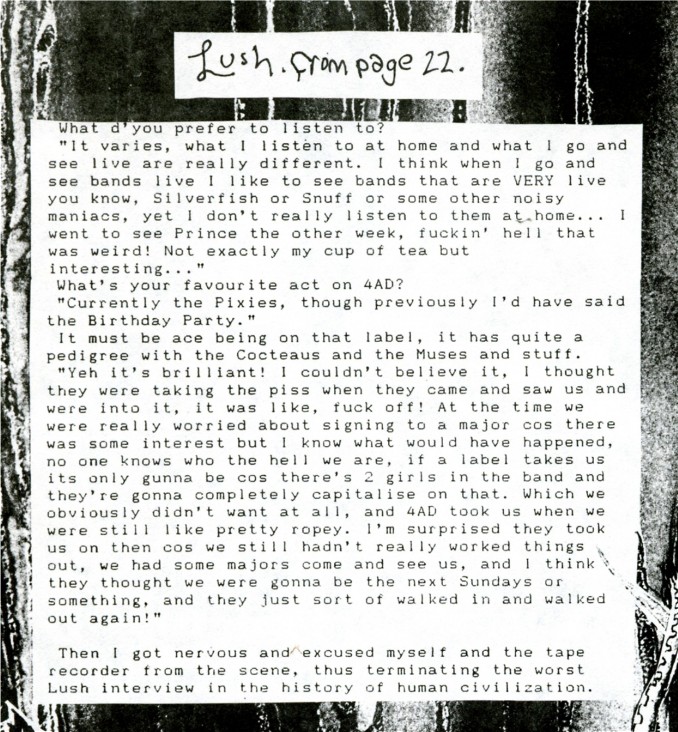 Lush. From page 22.
What d'you prefer to listen to?
"It varies, what I listen to at home and what I go and
see live are really different. I think when I go and
see bands live I like to see bands that are VERY live
you know, Silverfish or Snuff or some other noisy
maniacs, yet I don't really listen to them at home... I
went to see Prince the other week, fuckin' hell that
was weird! Not exactly my cup of tea but
interesting..."
What's your favourite act on 4AD?
"Currently the Pixies, though previously I'd have said
the Birthday Party."
It must be ace being on that label, it has quite a
pedigree with the Cocteaus and the Muses and stuff.
"Yeh it's brilliant! I couldn't believe it, I thought
they were taking the piss when they came and saw us and
were into it, it was like, fuck off! At the time we
were really worried about signing to a major cos there
was some interest but I know what would have happened,
no one knows who the hell we are, if a label takes us
its only gunna be cos there's 2 girls in the band and
they're gonna completely capitalise on that. Which we
obviously didn't want at all, and 4AD took us when we
were still like pretty ropey. I'm surprised they took
us on then cos we still hadn't really worked things
out, we had some majors come and see us, and I think
they thought we were gonna be the next Sundays or
something, and they just sort of walked in and walked
out again!"
Then I got nervous and excused myself and the tape
recorder from the scene, thus terminating the worst
Lush interview in the history of human civilization.